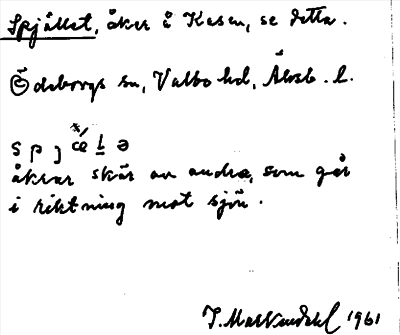 Spjället, åker å Kasen, se detta.
Ödeborgs sn, Valbo hd, Älvsb. l.
s p j æ̀ l ə
åkrar skär av andra, som går
i riktning mot sjön.
1961